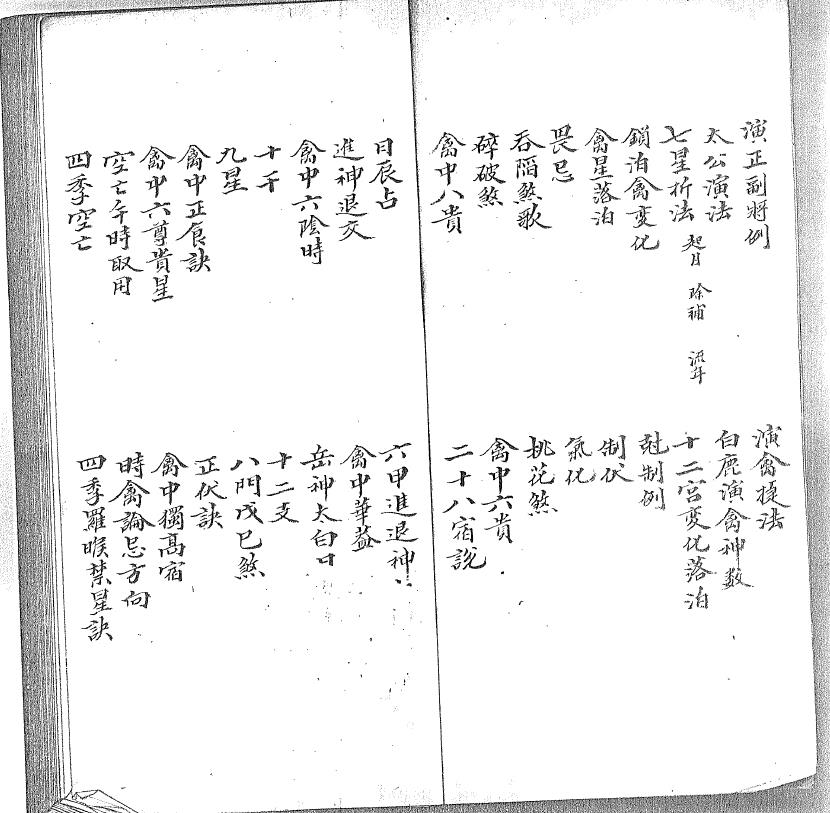 演正副將例
演禽捷法
太公演法
白鹿演禽神数
七星折法 起日 除補 流年
十二宮変化落泊
鎖泊禽変化
尅制例
禽星落泊
制伏
畏忌
氣化
吞陷煞歌
桃花煞
碎破煞
禽中六贵
禽中八贵
二十八宿說
日辰占
六甲進退神
進神退交
禽中華益
禽中六陰時
岳神太白
十干
十二支
九星
八門戊巳煞
禽中正食訣
正伏訣
禽中六尊貴星
禽中獨髙宿
空亡午時取用
時禽論忌方向
四季空亡
四季羅㬋禁星訣